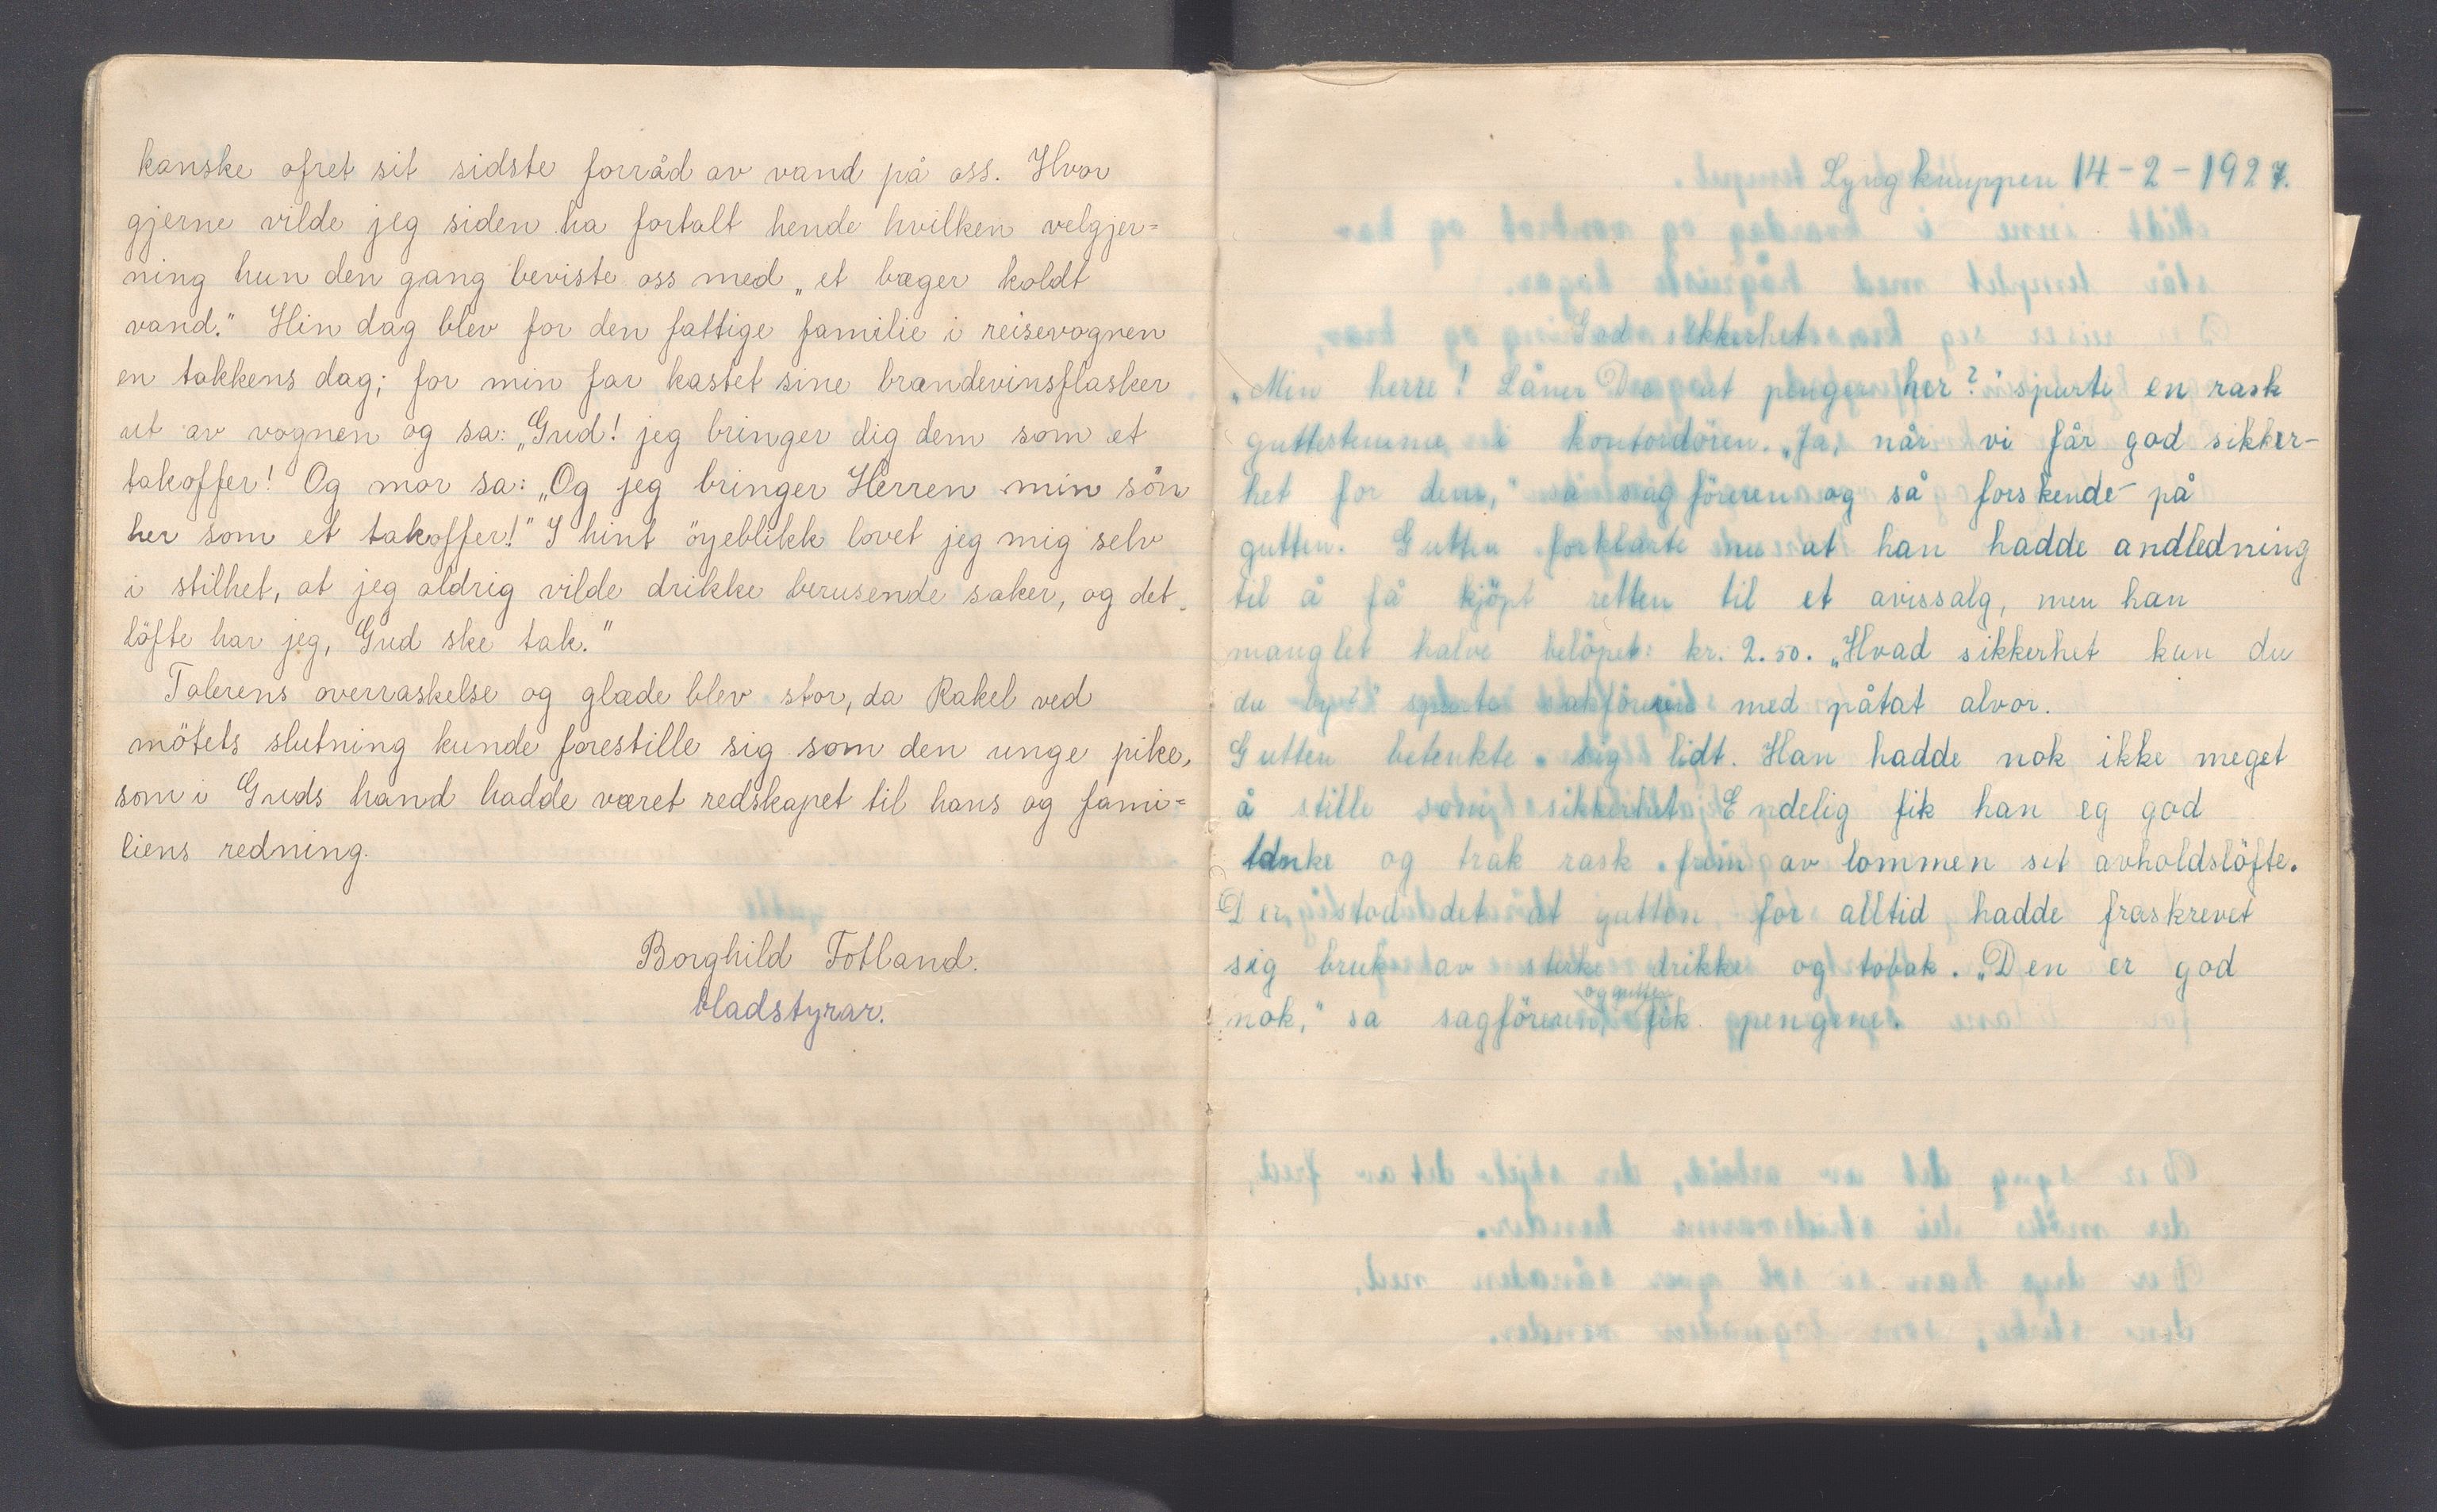 kanske ofret sit sidste forråd av vand på oss. Hvor
gjerne vilde jeg siden ha fortalt hende hvilken velgjer=
ning hun den gang beviste oss med „et bæger koldt
vand." Hin dag blev for den fattige familie i reisevognen
en takkens dag; for min far kastet sine brændevinsflasker
ut av vognen og sa: „Gud! jeg bringer dig dem som et
takoffer! Og mor sa: „Og jeg bringer Herren min sön
her som et takoffer!" I hint öyeblikk lovet jeg mig selv
i stilhet, at jeg aldrig vilde drikke berusende saker, og det
löfte har jeg, Gud ske tak."
Talerens overraskelse og glæde blev stor, da Rakel ved
mötets slutning kunde forestille sig som den unge pike,
som i Guds hand hadde været redskapet til hans og fami=
liens redning.
Borghild Totland.
bladstyrar.
Lyngknuppen 14-2-1927.
God sikkerhet
„Min herre! Låner De ut penger her?" spurte en rask
guttestemme i kontordören. „Ja, når vi får god sikker-
het for dem," sa sagföreren og så forskende på
gutten. Gutten forklarte nu at han hadde andledning
til å få kjöpt retten til et avissalg, men han
manglet halve belöpet: kr. 2.50. „Hvad sikkerhet kan du
du by?" spurte sakföreren med påtat alvor.
Gutten betenkte sig lidt. Han hadde nok ikke meget
å stille som sikkerhet. Endelig fik han eg god
tanke og trak rask frem av lommen sit avholdslöfte.
Der stod det at gutten for alltid hadde fraskrevet
sig bruk av sterke drikke og tobak. „Den er god
nok," sa sagföreren, og gutten fik pengene.